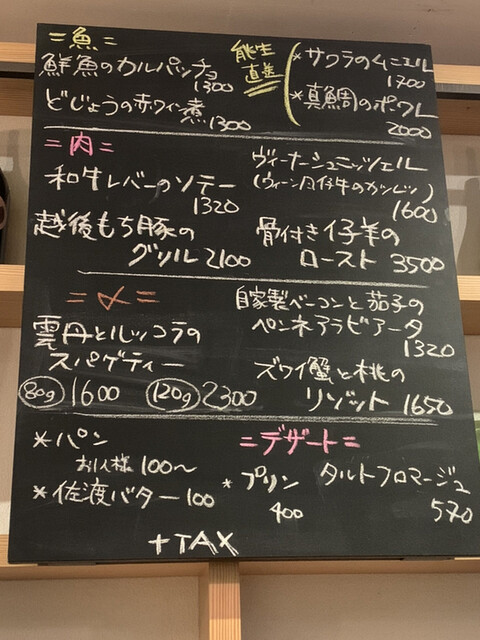 =魚=
鮮魚のカルパッチョ
1300
どじょうの赤ワイン煮
1300
能生
直送
*サクラのムニエル
1700
*真鯛のポワレ
2000
=肉=
和牛レバーのソテー
1320
越後もち豚の
グリル 2100
ヴィーナーシュニッツェル
(ウィーン風仔牛のカツレツ)
1600
骨付き仔羊の
ロースト 3500
=〆=
雲丹とルッコラの
スパゲティー
80g 1600 120g 2300
自家製ベーコンと茄子の
ペンネアラビアータ
1320
ズワイ蟹と桃の
リゾット 1650
*パン
お1人様 100〜
*佐渡バター 100
=デザート=
*プリン
400
タルトフロマージュ
570
+TAX